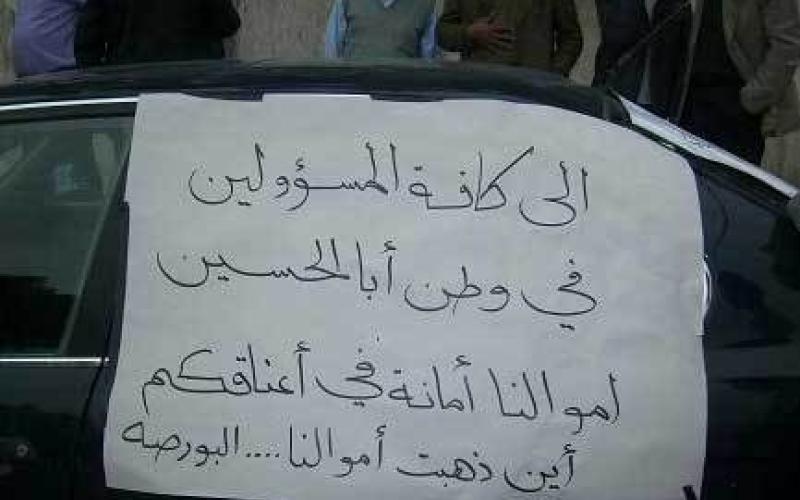 الى كافة المسؤولين
في وطن أبا الحسين
اموالنا أمانة في أعناقكم
أين ذهبت أموالنا .... البورصه